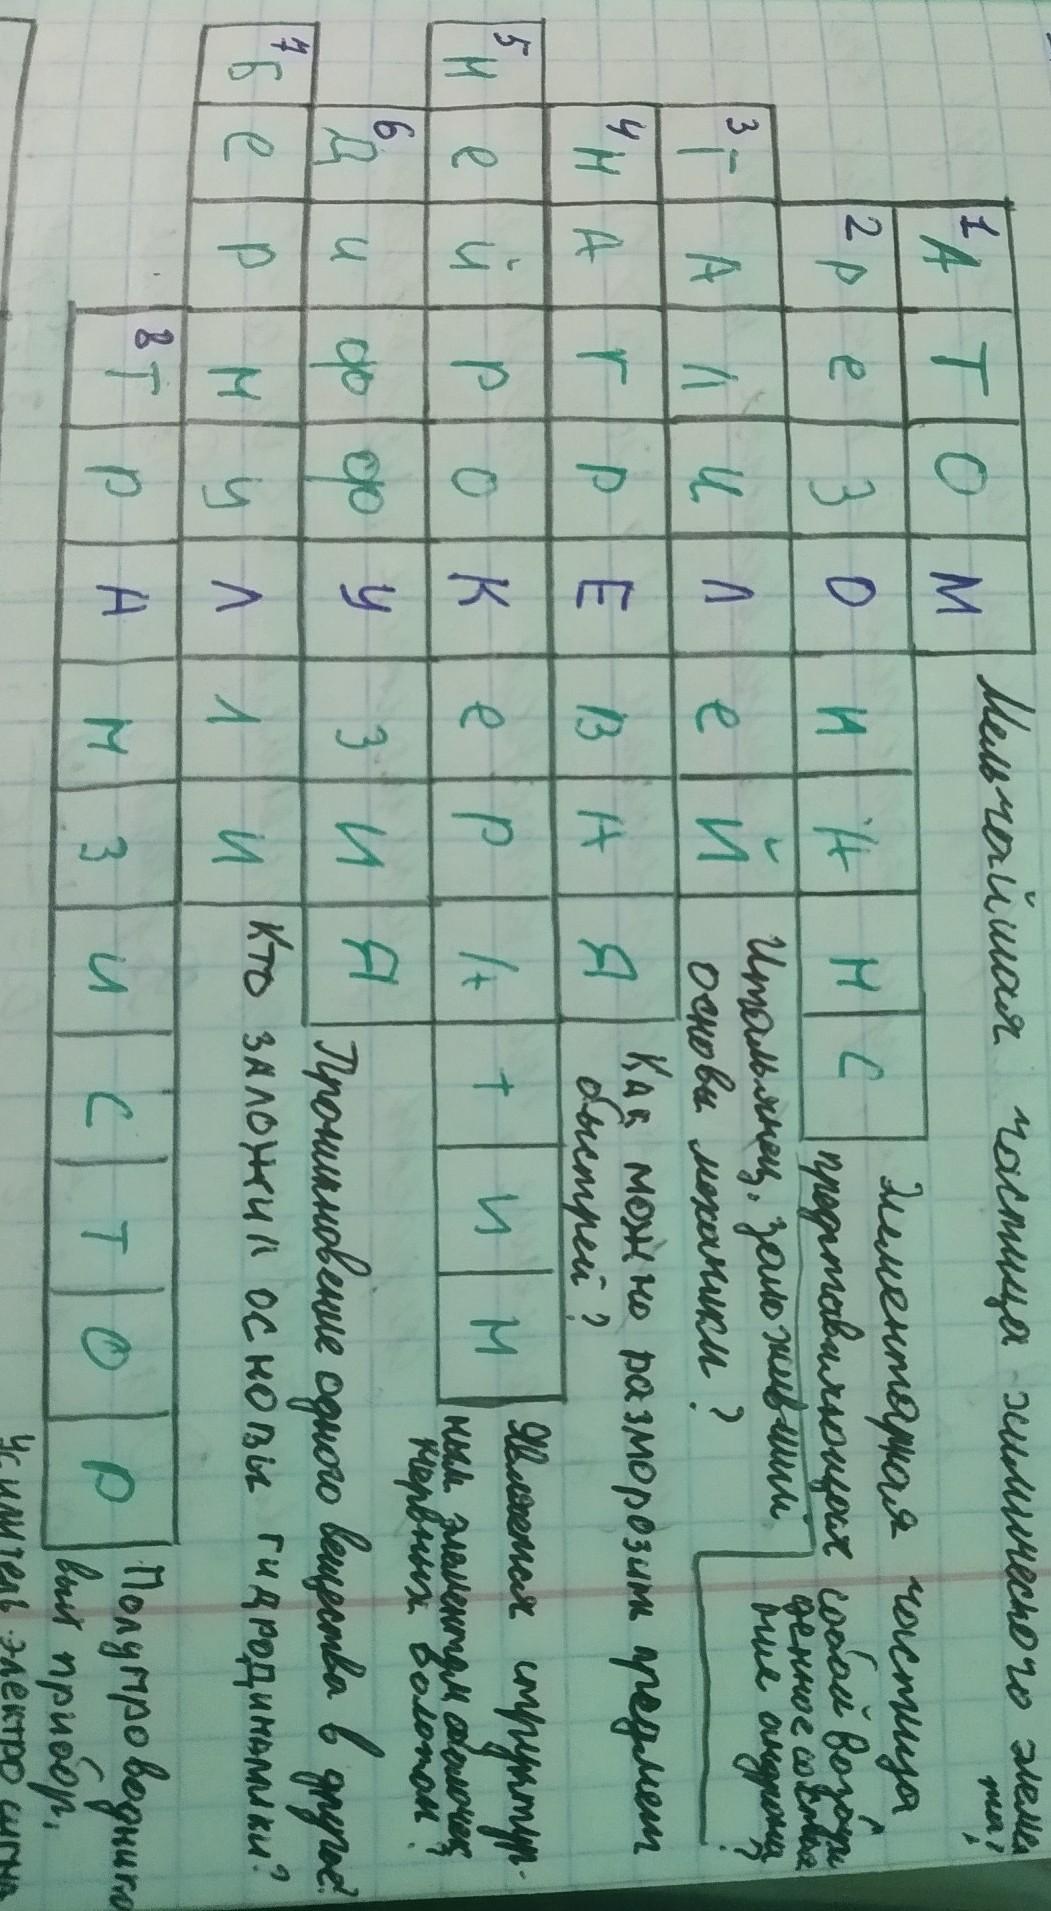 1 А Т О М
Мельчайшая частица химического элеме
та?
2 Р е З О Н А Н С
Элементарная частица
представляющая собой возбуж
денное состоя
ние адрона?
3 Г А Л И Л е Й
Итальянец, заложивший
основы механики?
4 Н А Г Р Е В А Я
Как можно разморозить предмет
быстрей?
5 Н е й р о К е р А т И Н
Является структур-
ным элементом оболочек
нервных волокон?
6 Д и ф ф У З И Я
Проникновение одного вещества в другое?
7 Б е р н у Л Л И
Кто заложил основы гидродинамики?
8 Т Р А Н З И С Т О Р
Полупроводнико
вый прибор,
усилитель электро сигна